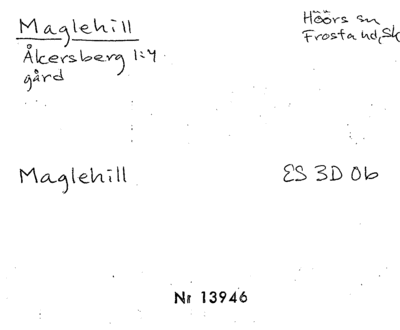 Maglehill
Höörs sn
Åkersberg 1:4
Frosta hd, Sk
gård
Maglehill
ES 3D 0b
Nr 13946